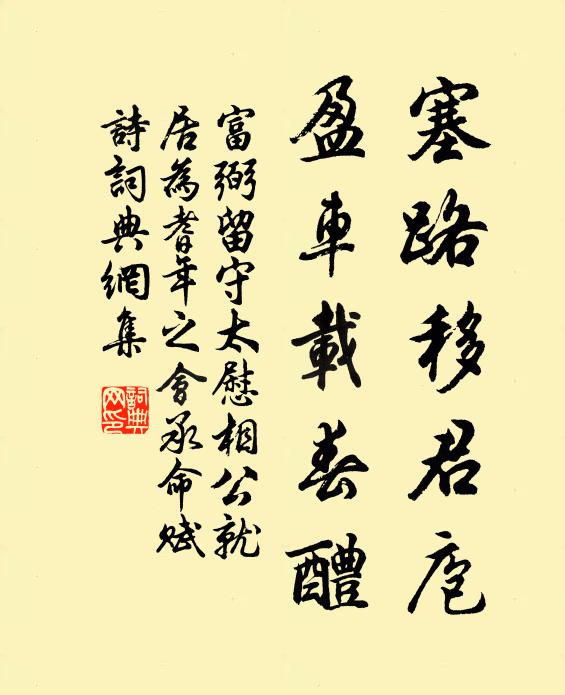 塞路移君庖
盈車載春醴
富弼留守太慰相公就
居為耆年之會承命賦
詩詞典網集
詞典網印